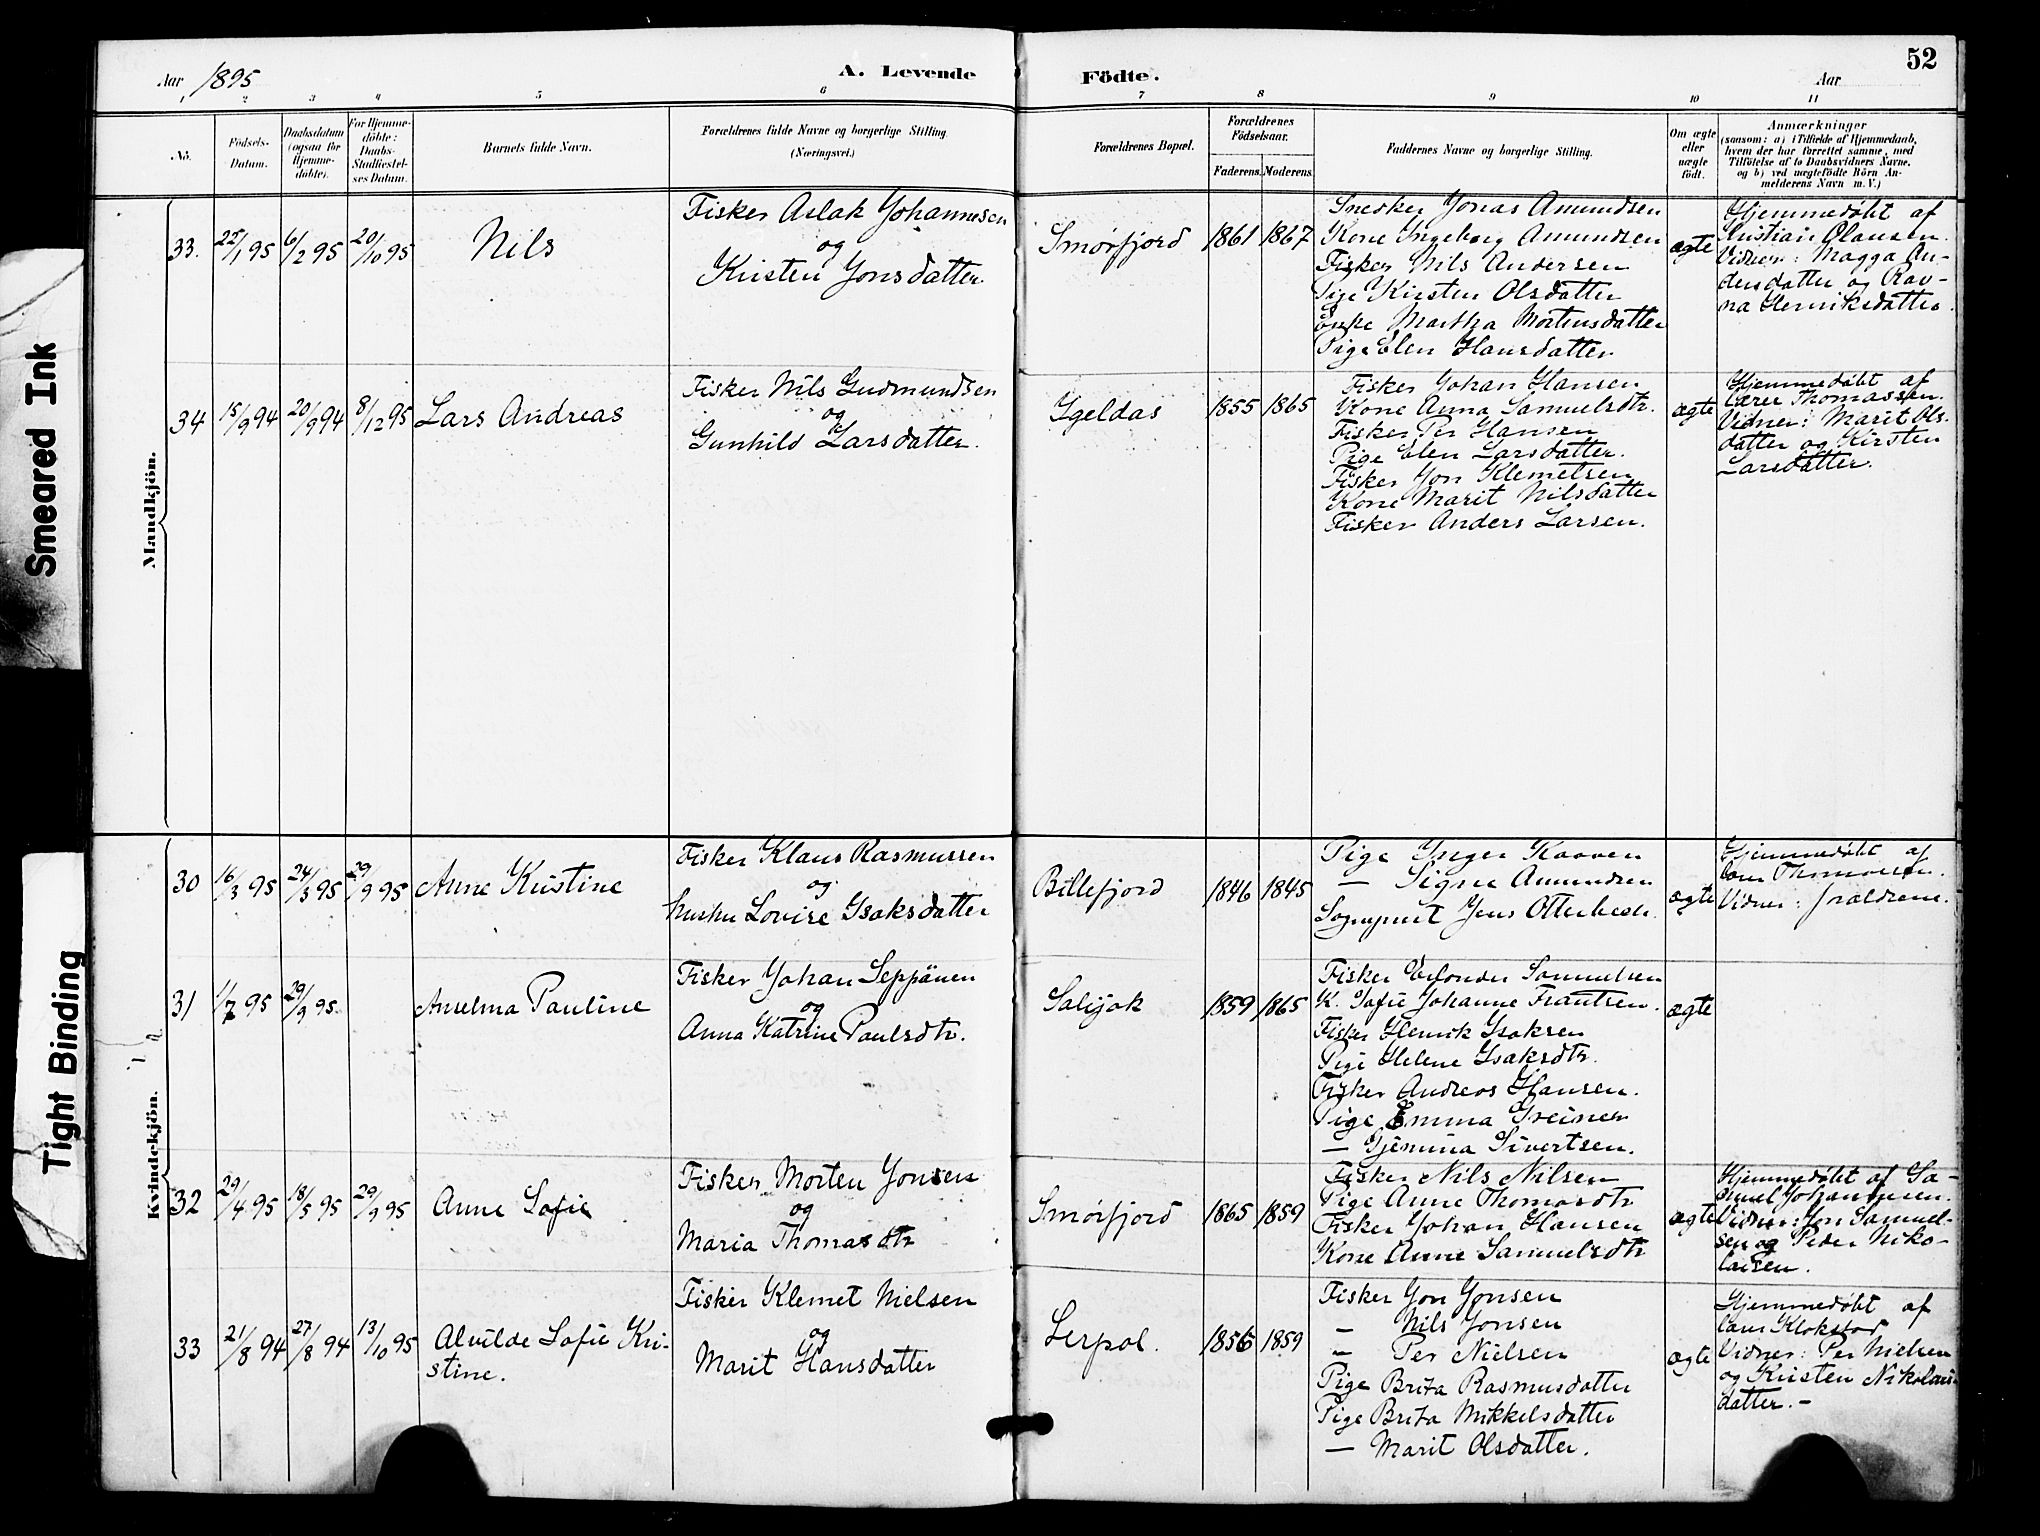 Smeared Ink
Tight Binding
Aar 1895
A. Levende Födte.
Aar
52
1 2 3 4 5 6 7 8 9 10 11
No.
Födsels-
Datum.
Daabsdatum
(ogsaa for
Hjemme-
döbte).
For Hjemme-
döbte:
Daabs-
Stadfæstel-
ses Datum.
Barnets fulde Navn.
Forældrenes fulde Navne og borgerlige Stilling.
(Næringsvei.)
Forældrenes Bopæl.
Forældrenes
Födselsaar.
Faderens. Moderens.
Faddernes Navne og borgerlige Stilling.
Om ægte
eller
uægte
födt.
Anmærkninger
(saasom: a) i Tilfælde af Hjemmedaab,
hvem der har forrettet samme, med
Tilföielse af to Daabsvidners Navne,
og b) ved uægtefödte Börn An-
melderens Navn m. V.)
Mandkjön.
33. 22/1 95 6/2 95 20/10 95
Nils
Fisker Aslak Johannesen
og
Kirsten Jonsdatter
Smørfjord
1861 1867
Snedker Jonas Amundsen
Kone Ingeborg Amundsen
Fisker Nils Andersen
Pige Kirsten Olsdatter
Enke Martha Mortensdatter
Pige Elen Hansdatter
ægte
Hjemmedøbt af
Kristian Olausen.
Vidner: Magga An-
dersdatter og Rav-
na Henriksdatter.
34 15/9 94 20/9 94 8/12 95
Lars Andreas
Fisker Nils Gudmundsen
og
Gunhild Larsdatter.
Igeldas
1855 1865
Fisker Johan Hansen
Kone Anna Samuelsdtr.
Fisker Per Hansen
Pige Elen Larsdatter.
Fisker Jon Klemetsen
Kone Marit Nilsdatter
Fisker Anders Larsen.
ægte
Hjemmedøbt af
Lærer Thomassen.
Vidner: Marit Ols-
datter og Kirsten
Larsdatter.
Kvindekjön.
30 16/3 95 24/3 95 29/9 95
Anne Kristine
Fisker Klaus Rasmussen
og
hustru Lovise Isaksdatter
Billefjord
1846 1845
Pige Inger Kaaven
— Signe Amundsen
Sogneprest Jens Otterbech.
ægte
Hjemmedøbt af
Thomassen.
Vidner: forældrene.
31 1/7 95 29/9 95
Anselma Pauline
Fisker Johan Seppänen
og
Anna Katrine Paulsdtr.
Salijok
1859 1865
Fisker Samuelsen
K. Sofie Johanne Frantsen.
Fisker Henrik Isaksen
Pige Helene Isaksdtr.
Fisker Andreas Hansen.
Pige Emma Greiner
— Gjemina Sivertsen.
ægte
32 29/4 95 18/5 95 29/9 95
Anne Sofie
Fisker Morten Jonsen
og
Maria Thomasdtr
Smørfjord
1865 1859
Fisker Nils Nilsen
Pige Anne Thomasdtr
Fisker Johan Hansen
Kone Anne Samuelsdtr
ægte
Hjemmedøbt af Sa-
muel Johannesen.
Vidner: Jon Samuel-
sen og Peder Niko-
laisen.
33 21/8 94 27/8 94 13/10 95
Alvilde Sofie Kri-
stine.
Fisker Klemet Nielsen
og
Marit Hansdatter
Lerpol.
1856 1859
Fisker Jon Jonsen
— Nils Jonsen
— Per Nielsen
Pige Brita Rasmusdatter
Pige Brita Mikkelsdatter
— Marit Olsdatter.
ægte
Hjemmedøbt af
Lars Klokstad
Vidner: Per Nielsen
og Kristen Nikolais-
datter. —